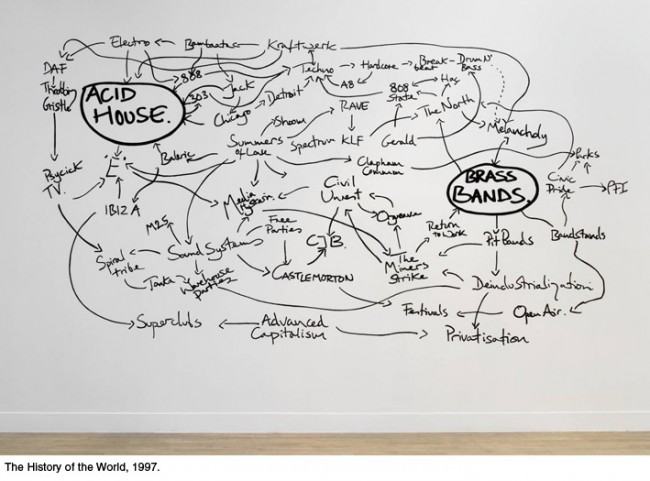 Electro
Bambaataa
Kraftwerk
DAF
808
Techno
Hardcore
Break-
beat
Drum N'
Bass
Throbbing
Gristle
ACID
HOUSE.
303
Jack
Detroit
A8
808
State
Hac
Chicago
RAVE
The North
Shoom
Melancholy
Summers
of Love
Spectrum
KLF
Gerald
Balearic
Clapham
Common
Parks
Psychick
TV.
'E'.
BRASS
BANDS.
Civic
Pride
PFI
IBIZA
Media
Hysteria.
Civil
Unrest
Orgreave
M25
Free
Parties
Return
to Work
Pit Bands
Bandstands
Spiral
Tribe
Sound Systems
C.J.B.
The
Miners
Strike
Tonka
Warehouse
parties
CASTLEMORTON
Deindustrialization
Festivals
Open Air.
Superclubs
Advanced
Capitalism
Privatisation
The History of the World, 1997.